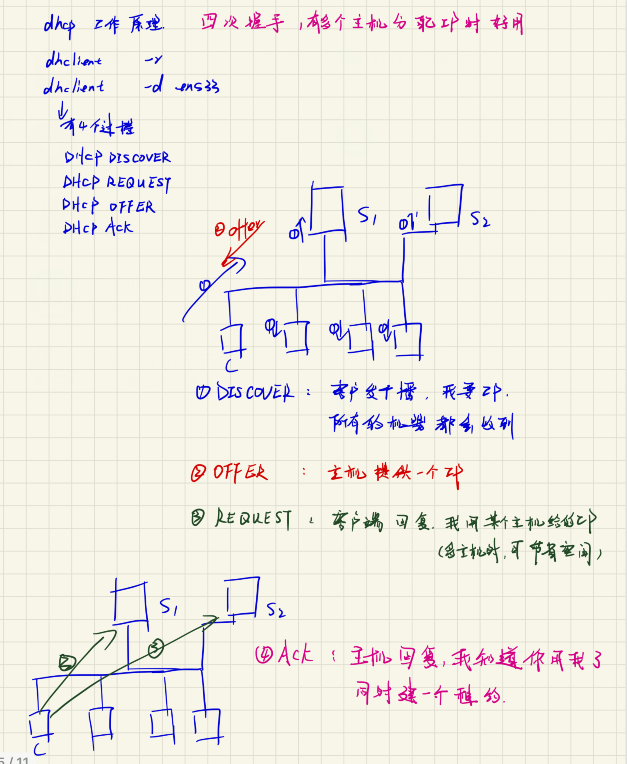 dhcp 工作原理 四次握手，有多个主机分配IP时好用
dhclient -r
dhclient -d ens33
有4个过程
DHCP DISCOVER
DHCP REQUEST
DHCP OFFER
DHCP Ack
S1
S2
② offer
①
①
①
①
①
①
C
① DISCOVER： 客户发广播，我要IP.
所有的机器都会收到
② OFFER ： 主机提供一个IP
③ REQUEST： 客户端回复，我用某个主机给的IP
（多主机时，可节省空间）
S1
S2
②
③
④ Ack ： 主机回复，我知道你用我了
同时建一个租约.
C
5/11